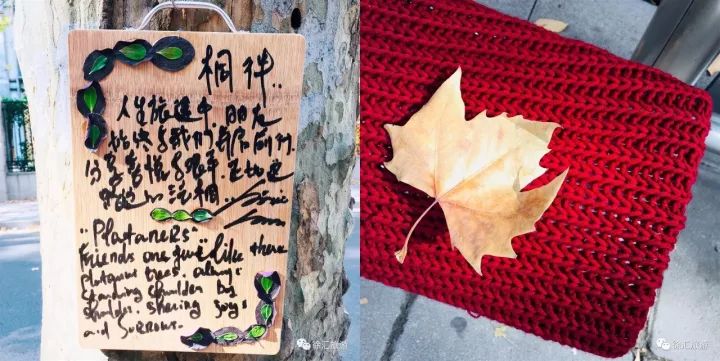 桐伴..
人生旅途中 朋友
始终与我们并肩同行.
分享喜悦与艰辛 正如这
法桐.
"Plataners"
Friends are just like these
platanus trees. always
standing shoulder by
shoulder. sharing joys
and sorrows.
徐汇旅游
徐汇旅游